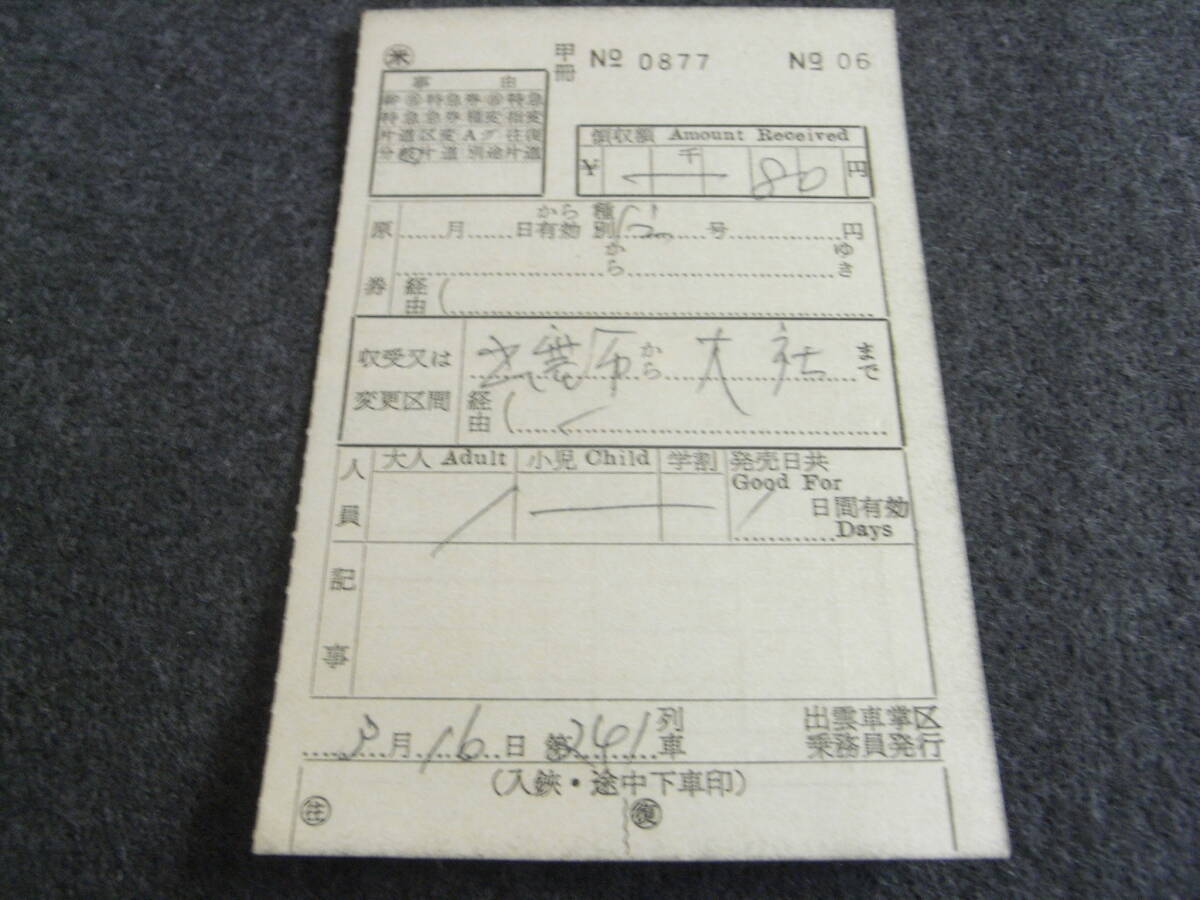 米
甲冊 № 0877 № 06
事由
特急券 特急
特急急券種変指変
片道区変Aグ往復
分岐片道別途片道
領収額 Amount Received
¥ 千 80 円
原券 月 日から有効 種別 号 円
から ゆき
経由(
収受又は変更区間 出雲市から大社まで
経由(
人員 大人 Adult 小児 Child 学割 発売日共
Good For
1 日間有効
Days
記事
3月16日 第241列車 出雲車掌区
乗務員発行
(入鋏・途中下車印)
往 復